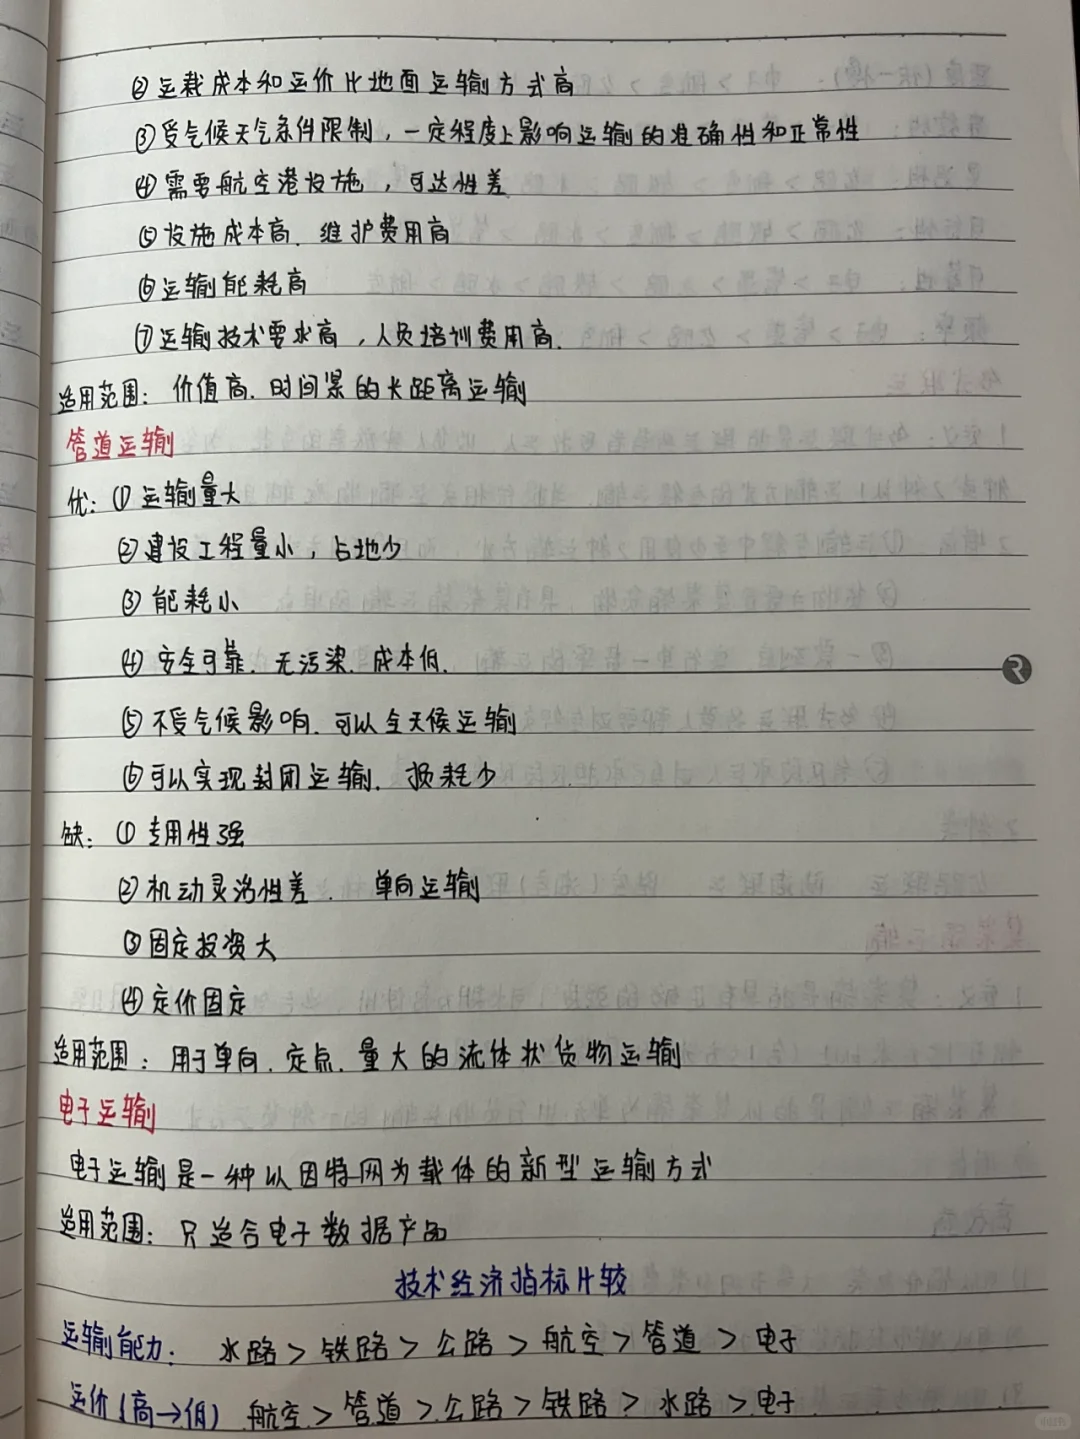 ②运载成本和运价比地面运输方式高
③受气候天气条件限制，一定程度上影响运输的准确性和正常性
④需要航空港设施，可达性差
⑤设施成本高、维护费用高
⑥运输能耗高
⑦运输技术要求高，人员培训费用高.
适用范围：价值高、时间紧的长距离运输
管道运输
优：①运输量大
②建设工程量小，占地少
③能耗小
④安全可靠、无污染、成本低.
⑤不受气候影响、可以全天候运输
⑥可以实现封闭运输、损耗少
缺：①专用性强
②机动灵活性差、单向运输
③固定投资大
④定价固定
适用范围：用于单向、定点、量大的流体状货物运输
电子运输
电子运输是一种以因特网为载体的新型运输方式
适用范围：只适合电子数据产品
技术经济指标比较
运输能力：水路＞铁路＞公路＞航空＞管道＞电子
运价(高→低) 航空＞管道＞公路＞铁路＞水路＞电子